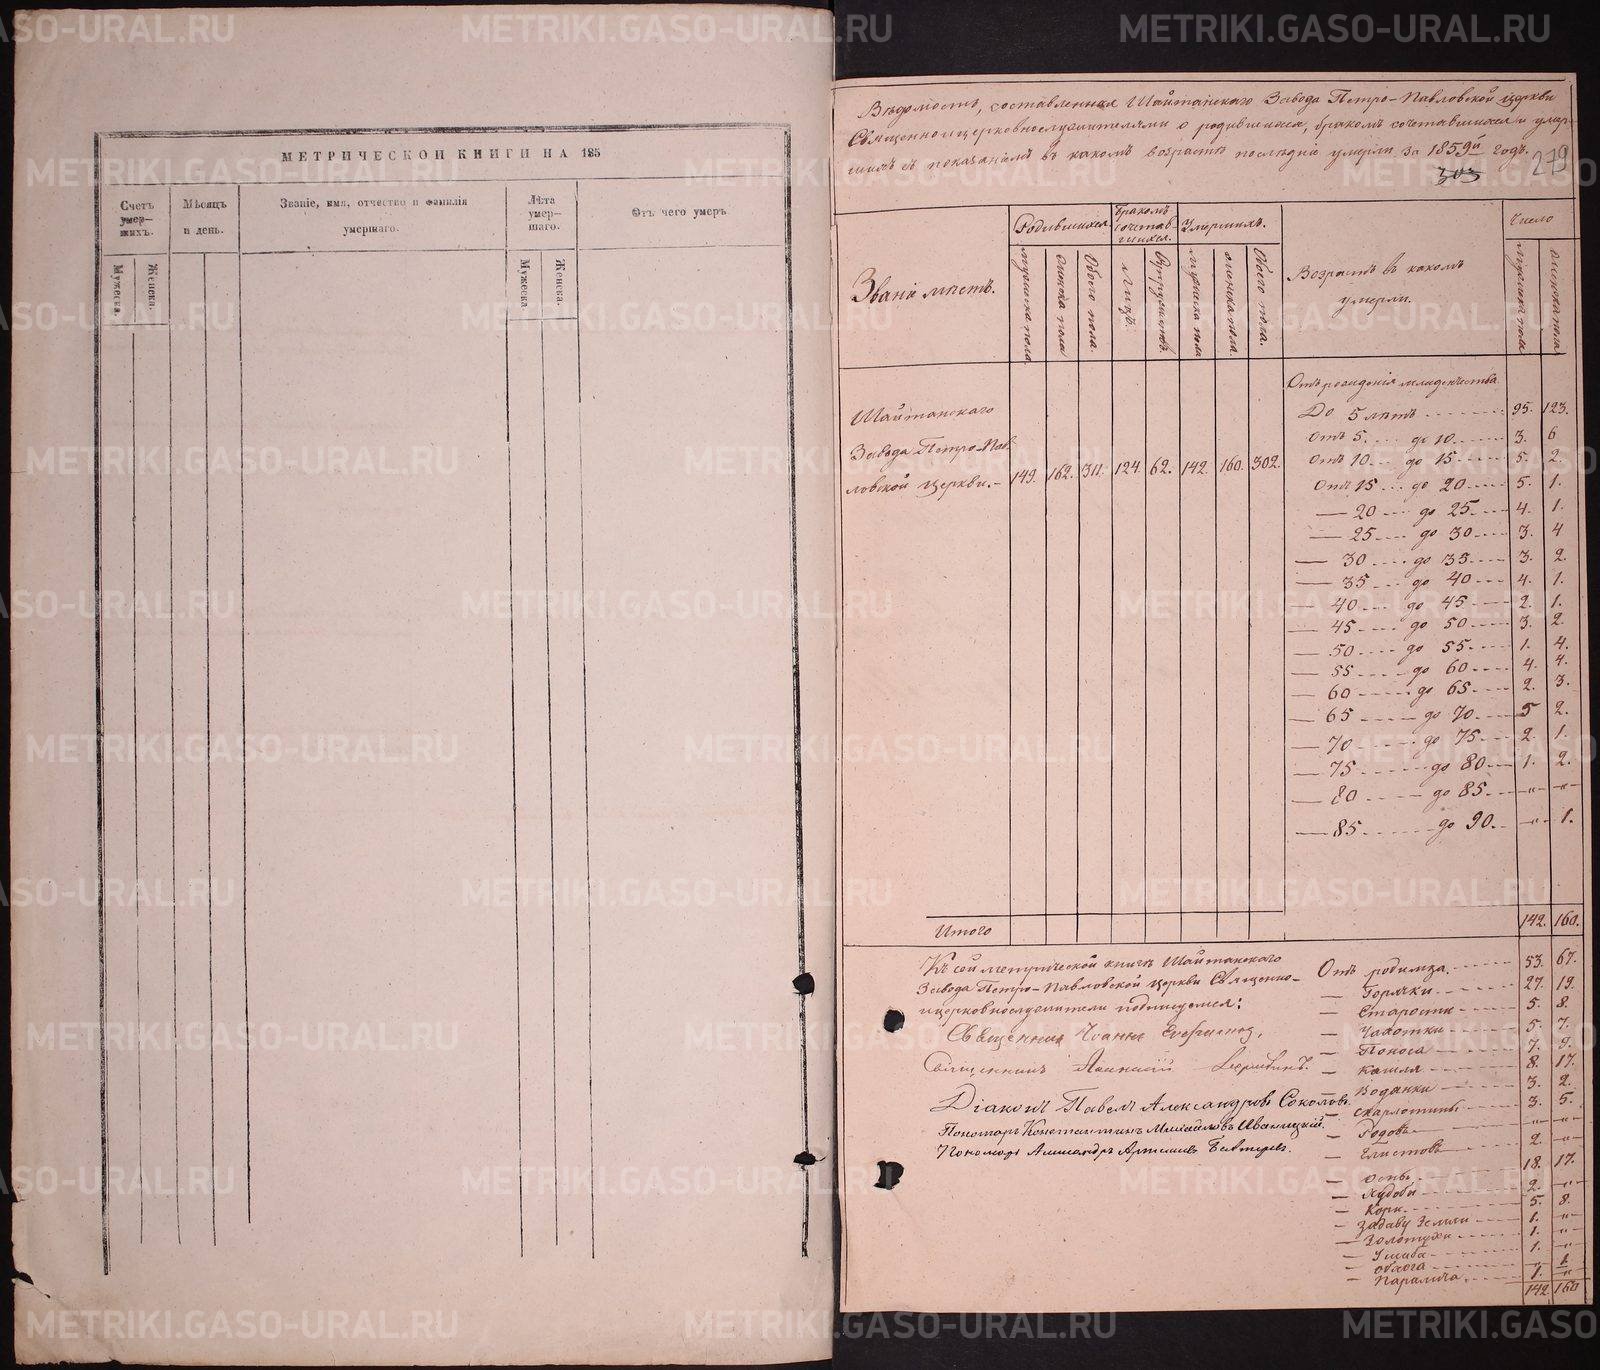 МЕТРИЧЕСКОЙ КНИГИ НА 185
Счетъ умер-шихъ.
Мѣсяцъ и день.
Званіе, имя, отчество и фамилія умершаго.
Лѣта умер-шаго.
Отъ чего умеръ
Мужеска.
Женска.
Мужеска
Женска.
Вѣдомость, составленная Шайтанскаго Завода Петро-Павловской церкви
Священноицерковнослужителями о родившихся, бракомъ сочетавшихся и умер-
шихъ съ показаніемъ въ какомъ возрастѣ послѣдніе умерли за 1859й годъ.
303
279
Званіе мѣстъ.
Родившихся.
Бракомъ сочетав-шихся.
Умершихъ.
Возрастъ въ какомъ умерли.
Число
мужеска пола
женска пола
Обоего пола.
Лицъ.
Супружествъ.
мужеска пола
женска пола.
Обоего пола.
мужеска пола
женска пола
Шайтанскаго
Завода Петро-Пав-
ловской церкви.- 149. 162. 311. 124. 62. 142. 160. 302.
Отъ рожденія младенчества
До 5 лѣтъ 95. 123.
Отъ 5 до 10 3. 6
Отъ 10 до 15 5. 2.
Отъ 15 до 20 5. 1.
— 20 до 25 4. 1.
— 25 до 30 3. 4
— 30 до 35 3. 2.
— 35 до 40 4. 1.
— 40 до 45 2. 1.
— 45 до 50 3. 2.
— 50 до 55 1. 4.
— 55 до 60 4. 4.
— 60 до 65 2. 3.
— 65 до 70 5 2.
— 70 до 75 2. 1.
— 75 до 80 1. 2.
— 80 до 85 -„- -„-
— 85 до 90. -„- 1.
Итого 142. 160.
Къ сей метрической книгѣ Шайтанскаго
Завода Петро-Павловской церкви Священно-
ицерковнослужители подписуемся:
Священникъ Іоаннъ
Священникъ
Діаконъ Павелъ Александровъ Соколовъ.
Пономарь Константинъ Михайловъ Иваницкій.
Пономарь Александръ
Отъ родимца. 53. 67.
— Горячки 27. 19.
— Старости 5. 8.
— Чахотки 5. 7.
— Поноса 7. 9.
— Кашля 8. 17.
— Водянки 3. 2.
— Скарлотины 3. 5.
— Родовъ -„- -„-
— Глистовъ 2 -„-
— Оспы 18. 17.
— Худобы 2. -„-
— Кори 5. 8.
— Задаву Земли 1. „
— Золотухи 1. „
— Ушиба 1. -„-
— „ 1.
— Паралича. 1. „
142 160
METRIKI.GASO-URAL.RU